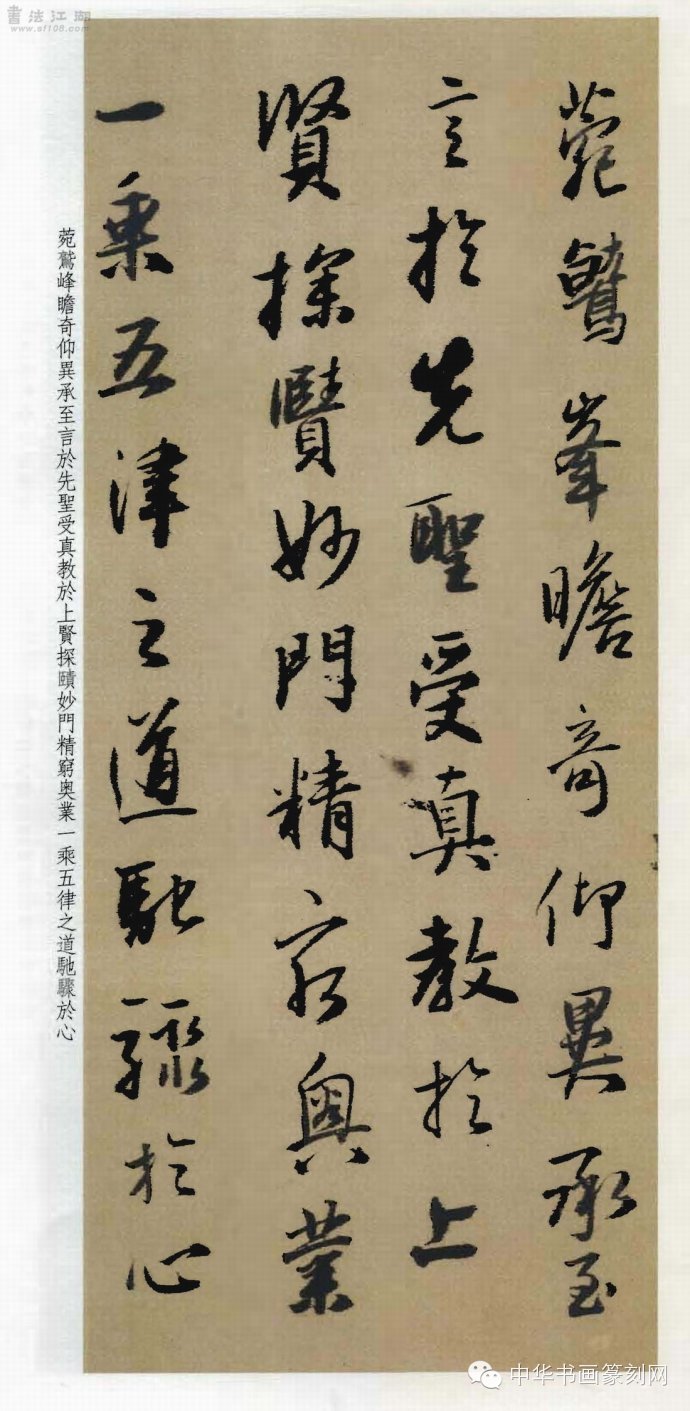 書法江湖
www.sf108.com
菀鷲峯瞻奇仰異承至
言於先聖受真教於上
賢探賾妙門精窮奧業
一乘五律之道馳驟於心
菀鷲峰瞻奇仰異承至言於先聖受真教於上賢探賾妙門精窮奧業一乘五律之道馳驟於心
中华书画篆刻网